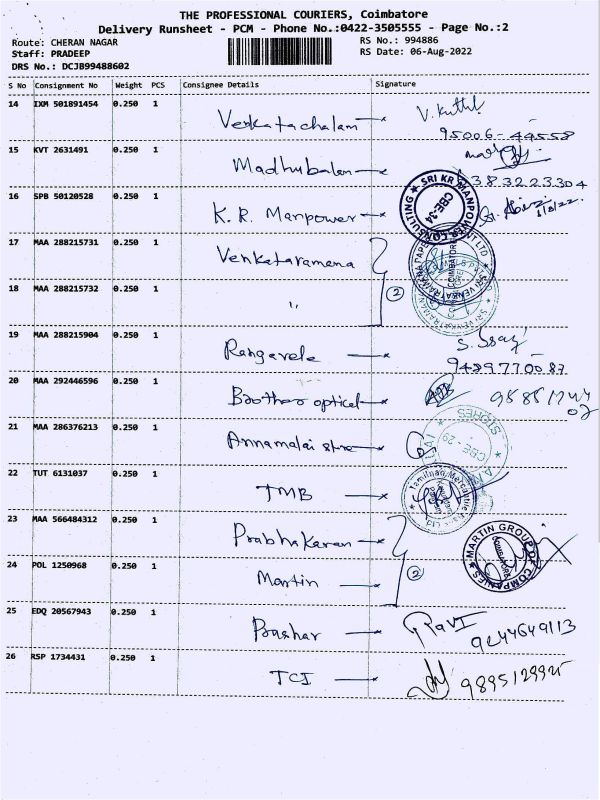 THE PROFESSIONAL COURIERS, Coimbatore
Delivery Runsheet - PCM - Phone No.:0422-3505555 - Page No.:2
Route: CHERAN NAGAR RS No.: 994886
Staff: PRADEEP RS Date: 06-Aug-2022
DRS No.: DCJB99488602
S No Consignment No Weight PCS Consignee Details Signature
14 IXM 501891454 0.250 1 Venkatachalam
95006-44558
15 KVT 2631491 0.250 1
16 SPB 50120528 0.250 1 K.R. Manpower
17 MAA 288215731 0.250 1 Venkataramana
18 MAA 288215732 0.250 1 〃 2
19 MAA 288215904 0.250 1
20 MAA 292446596 0.250 1 Brother optical
21 MAA 286376213 0.250 1 Annamalai
STORES
CBE - 29
22 TUT 6131037 0.250 1 TMB
23 MAA 566484312 0.250 1 Prabhakaran
MARTIN GROUP OF COMPANIES
COIMBATORE
24 POL 1250968 0.250 1 Martin 2
25 EDQ 20567943 0.250 1 Bashar Ravi
9244649113
26 RSP 1734431 0.250 1 TCI